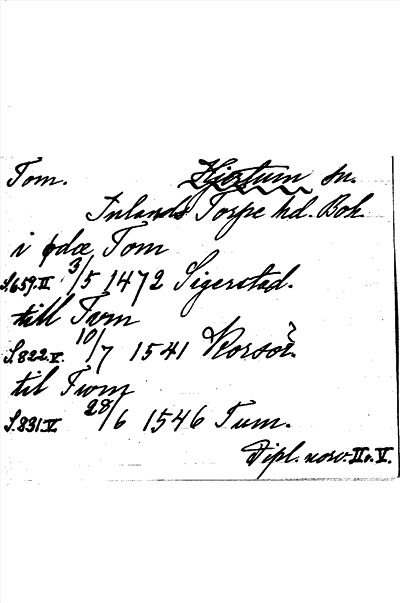 Tom. Hjertum sn.
Inlands Torpe hd. Boh
i ødæ Tom
S.659.II 3/5 1472 Sigerstad.
till Tvm
S.822.V. 10/7 1541 Korsör.
til Twm
S.831.V 28/6 1546 Tum.
Dipl. norv. II o. V.